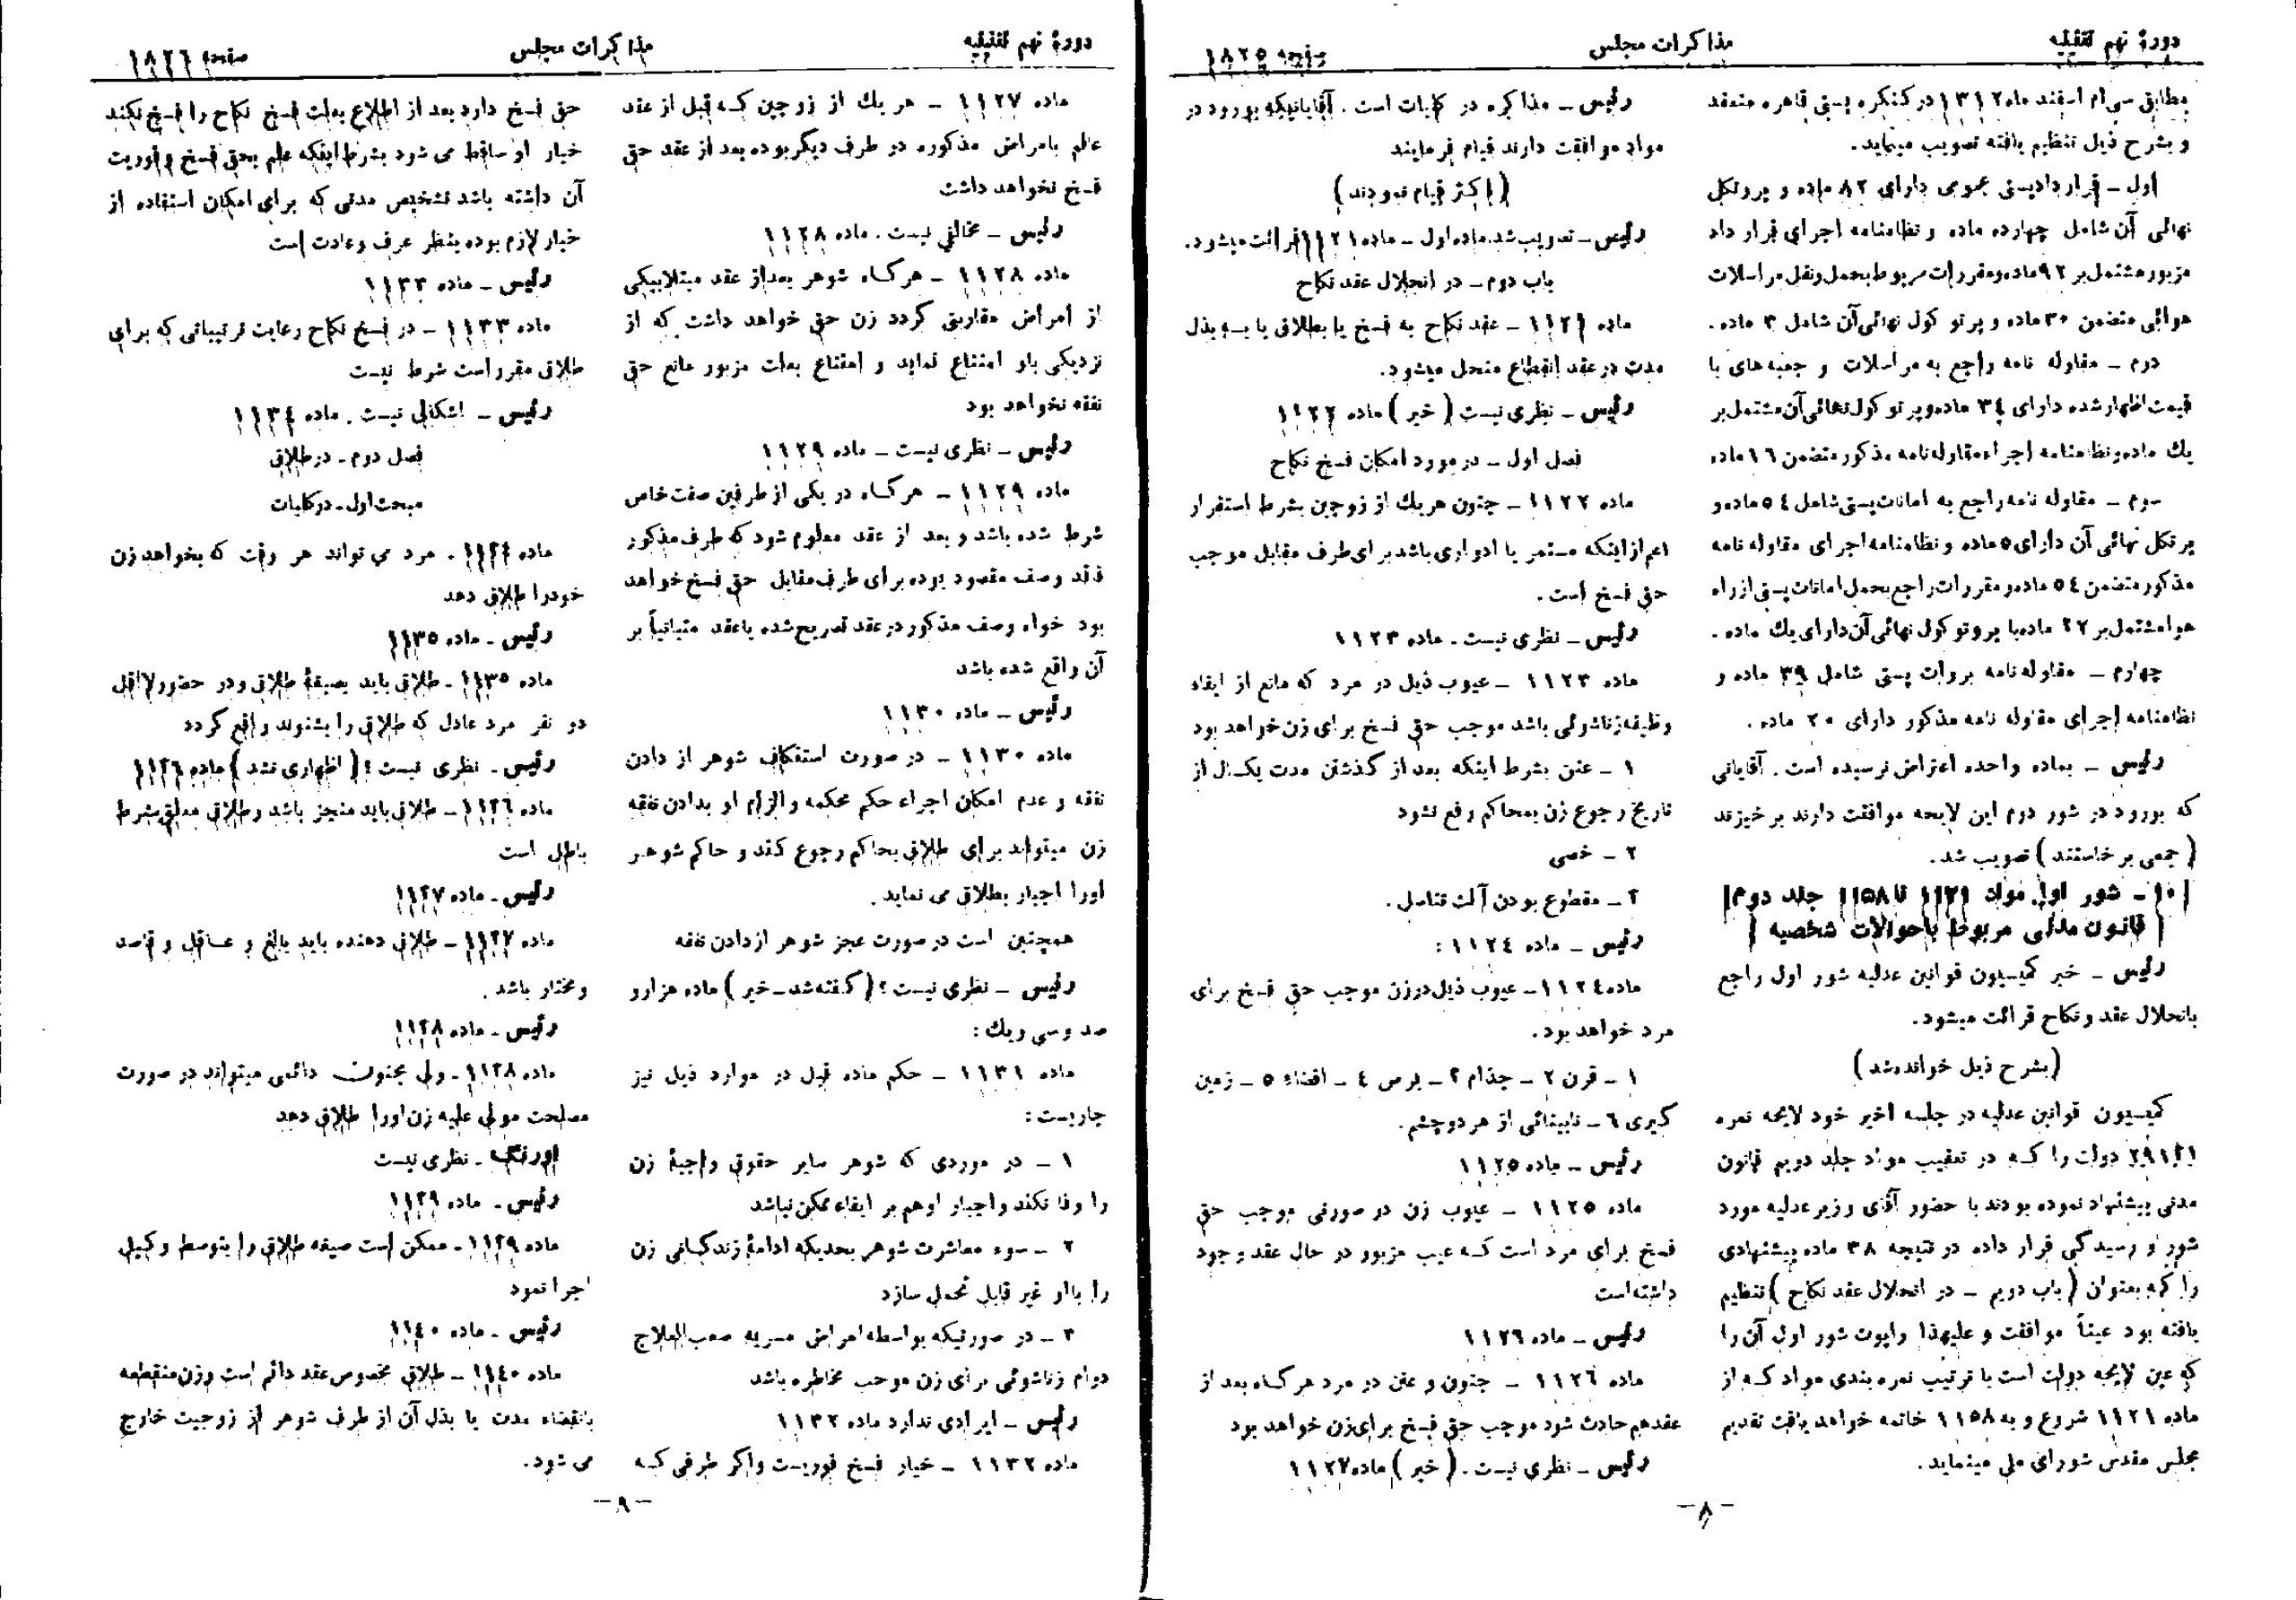 دورهٔ نهم تقنینیه
مذاکرات مجلس
صفحه ۱۸۲۵
مطابق سی‌ام اسفند ماه ۱۳۱۲ در کنگره پستی قاهره منعقد
و بشرح ذیل تنظیم یافته تصویب مینماید.
اول ــ قرارداد پستی عمومی دارای ۸۲ ماده و پروتکل
نهائی آن شامل چهارده ماده و نظامنامه اجرای قرار داد
مزبور مشتمل بر ۱۹۲ ماده و مقررات مربوط بحمل و نقل مراسلات
هوائی متضمن ۳۰ ماده و پرتو کول نهائی آن شامل ۳ ماده.
دوم ــ مقاوله نامه راجع به مراسلات و جعبه های با
قیمت اظهار شده دارای ۳٤ ماده و پرتو کول نهائی آن مشتمل بر
یك ماده و نظامنامه اجراء مقاوله نامه مذکور متضمن ۱٦ ماده
سوم ــ مقاوله نامه راجع به امانات پستی شامل ٥٤ ماده و
پرتکل نهائی آن دارای ٥ ماده و نظامنامه اجرای مقاوله نامه
مذکور متضمن ٥٤ ماده و مقررات راجع بحمل امانات پستی از راه
هوا مشتمل بر ۲۲ ماده با پروتو کول نهائی آن دارای یك ماده.
چهارم ــ مقاوله نامه بروات پستی شامل ۳۹ ماده و
نظامنامه اجرای مقاوله نامه مذکور دارای ۲۰ ماده.
رئیس ــ بماده واحده اعتراض نرسیده است. آقایانی
که بورود در شور دوم این لایحه موافقت دارند برخیزند
(جمعی برخاستند) تصویب شد.
[۱۰ ــ شور اول مواد ۱۱۲۱ تا ۱۱۵۸ جلد دوم]
[قانون مدنی مربوط باحوالات شخصیه]
رئیس ــ خبر کمیسیون قوانین عدلیه شور اول راجع
بانحلال عقد و نکاح قرائت میشود.
(بشرح ذیل خوانده شد)
کمیسیون قوانین عدلیه در جلسه اخیر خود لایحه نمره
دولت را کـه در تعقیب مواد جلد دویم قانون
مدنی پیشنهاد نموده بودند با حضور آقای وزیر عدلیه مورد
شور و رسیدگی قرار داده در نتیجه ۳۸ ماده پیشنهادی
را که بعنوان (باب دویم ــ در انحلال عقد نکاح) تنظیم
یافته بود عیناً موافقت و علیهذا راپوت شور اول آن را
که عین لایحه دولت است با ترتیب نمره بندی مواد کـه از
ماده ۱۱۲۱ شروع و به ۱۱۵۸ خاتمه خواهد یافت تقدیم
مجلس مقدس شورای ملی مینماید.
رئیس ــ مذاکره در کلیات است. آقایانیکه بورود در
مواد موافقت دارند قیام فرمایند
(اکثر قیام نمودند)
رئیس ــ تصویب شد. ماده اول ــ ماده ۱۱۲۱ قرائت میشود.
باب دوم ــ در انحلال عقد نکاح
ماده ۱۱۲۱ ــ عقد نکاح به فسخ یا بطلاق یا بـه بذل
مدت در عقد انقطاع منحل میشود.
رئیس ــ نظری نیست (خیر) ماده ۱۱۲۲
فصل اول ــ در مورد امکان فسخ نکاح
ماده ۱۱۲۲ ــ جنون هریك از زوجین بشرط استقرار
اعم از اینکه مستمر یا ادواری باشد برای طرف مقابل موجب
حق فسخ است.
رئیس ــ نظری نیست. ماده ۱۱۲۳
ماده ۱۱۲۳ ــ عیوب ذیل در مرد که مانع از ایفاء
وظیفه زناشوئی باشد موجب حق فسخ برای زن خواهد بود
۱ ــ عنن بشرط اینکه بعد از گذشتن مدت یکسال از
تاریخ رجوع زن بمحاکم رفع نشود
۲ ــ خصی
۳ ــ مقطوع بودن آلت تناسل.
رئیس ــ ماده ۱۱۲٤:
ماده ۱۱۲٤ ــ عیوب ذیل در زن موجب حق فسخ برای
مرد خواهد بود.
۱ ــ قرن ۲ ــ جذام ۳ ــ برص ٤ ــ افضاء ٥ ــ زمین
گیری ٦ ــ نابینائی از هر دو چشم.
رئیس ــ ماده ۱۱۲٥
ماده ۱۱۲٥ ــ عیوب زن در صورتی موجب حق
فسخ برای مرد است کـه عیب مزبور در حال عقد وجود
داشته است
رئیس ــ ماده ۱۱۲٦
ماده ۱۱۲٦ ــ جنون و عنن در مرد هرگـاه بعد از
عقد هم حادث شود موجب حق فسخ برای زن خواهد بود
رئیس ــ نظری نیست. (خیر) ماده ۱۱۲۷
ــ ۸ ــ
دورهٔ نهم تقنینیه
مذاکرات مجلس
صفحه ۱۸۲٦
ماده ۱۱۲۷ ــ هریك از زوجین کـه قبل از عقد
عالم بامراض مذکوره در طرف دیگر بوده بعد از عقد حق
فسخ نخواهد داشت
رئیس ــ مخالفی نیست. ماده ۱۱۲۸
ماده ۱۱۲۸ ــ هرگـاه شوهر بعد از عقد مبتلا بیکی
از امراض مقاربتی گردد زن حق خواهد داشت که از
نزدیکی باو امتناع نماید و امتناع بعلت مزبور مانع حق
نفقه نخواهد بود
رئیس ــ نظری نیست ــ ماده ۱۱۲۹
ماده ۱۱۲۹ ــ هرگـاه در یکی از طرفین صفت خاص
شرط شده باشد و بعد از عقد معلوم شود که طرف مذکور
فاقد وصف مقصود بوده برای طرف مقابل حق فسخ خواهد
بود خواه وصف مذکور در عقد تصریح شده یا عقد متبانیاً بر
آن واقع شده باشد
رئیس ــ ماده ۱۱۳۰
ماده ۱۱۳۰ ــ در صورت استنکاف شوهر از دادن
نفقه و عدم امکان اجراء حکم محکمه و الزام او بدادن نفقه
زن میتواند برای طلاق بحاکم رجوع کند و حاکم شوهر
اورا اجبار بطلاق می نماید.
همچنین است در صورت عجز شوهر از دادن نفقه
رئیس ــ نظری نیست؟ (گفته شد ــ خیر) ماده هزار و
صد و سی و یك:
ماده ۱۱۳۱ ــ حکم ماده قبل در موارد ذیل نیز
جاریست:
۱ ــ در موردی که شوهر سایر حقوق واجبهٔ زن
را وفا نکند و اجبار او هم بر ایفاء ممکن نباشد
۲ ــ سوء معاشرت شوهر بحدیکه ادامهٔ زندگـانی زن
را با او غیر قابل تحمل سازد
۳ ــ در صورتیکه بواسطه امراض مسریه صعب العلاج
دوام زناشوئی برای زن موجب مخاطره باشد
رئیس ــ ایرادی ندارد ماده ۱۱۳۲
ماده ۱۱۳۲ ــ خیار فسخ فوریست و اگر طرفی کـه
حق فسخ دارد بعد از اطلاع بعلت فسخ نکاح را فسخ نکند
خیار او ساقط می شود بشرط اینکه علم بحق فسخ و فوریت
آن داشته باشد تشخیص مدتی که برای امکان استفاده از
خیار لازم بوده بنظر عرف و عادت است
رئیس ــ ماده ۱۱۳۳
ماده ۱۱۳۳ ــ در فسخ نکاح رعایت ترتیباتی که برای
طلاق مقرر است شرط نیست
رئیس ــ اشکالی نیست. ماده ۱۱۳٤
فصل دوم ــ در طلاق
مبحث اول ــ در کلیات
ماده ۱۱۳٤. مرد می تواند هر وقت که بخواهد زن
خودرا طلاق دهد
رئیس ــ ماده ۱۱۳٥
ماده ۱۱۳٥ ــ طلاق باید بصیغهٔ طلاق و در حضور لااقل
دو نفر مرد عادل که طلاق را بشنوند واقع گردد
رئیس ــ نظری نیست؟ (اظهاری نشد) ماده ۱۱۳٦
ماده ۱۱۳٦ ــ طلاق باید منجز باشد و طلاق معلق بشرط
باطل است
رئیس ــ ماده ۱۱۳۷
ماده ۱۱۳۷ ــ طلاق دهنده باید بالغ و عـاقل و قاصد
و مختار باشد.
رئیس ــ ماده ۱۱۳۸
ماده ۱۱۳۸ ــ ولی مجنون دائمی میتواند در صورت
مصلحت مولی علیه زن اورا طلاق دهد
اورنگ ــ نظری نیست
رئیس ــ ماده ۱۱۳۹
ماده ۱۱۳۹ ــ ممکن است صیغه طلاق را بتوسط وکیل
اجرا نمود
رئیس ــ ماده ۱۱٤۰
ماده ۱۱٤۰ ــ طلاق مخصوص عقد دائم است و زن منقطعه
بانقضاء مدت یا بذل آن از طرف شوهر از زوجیت خارج
می شود.
ــ ۹ ــ